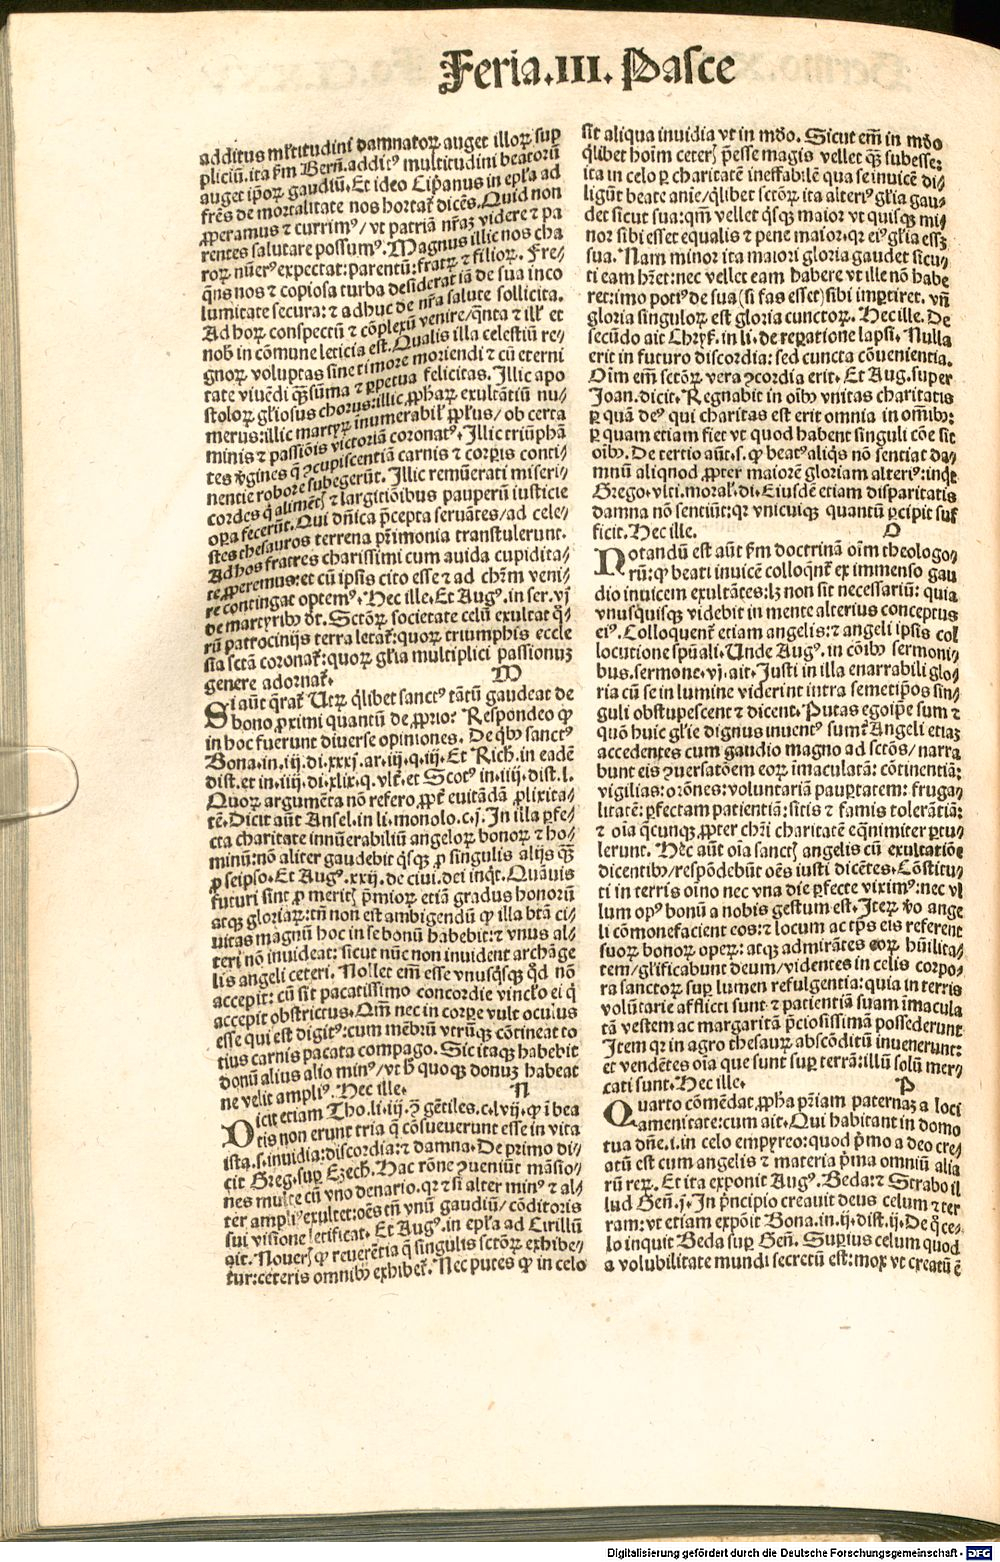 Feria.III. Pasce
additus ml̃titudini damnatoꝝ auget illoꝝ sup
pliciũ.ita ẜm Berñ.additꝰ multitudini beatorũ
auget ip̃oꝝ gaudiũ.Et ideo Cip̃anus in ep̃la ad
fr̃es de mortalitate nos hortat̃ dicẽs.Quid non
ꝓperamus ⁊ currimꝰ/ vt patriã nr̃aꝫ videre ⁊ pa
rentes salutare possumꝰ.Magnus illic nos cha
roꝝ nũerꝰ expectat:parentũ:fratꝝ ⁊ filioꝝ. Fre⸗
q̃ns nos ⁊ copiosa turba desiderat iã de sua inco
lumitate secura: ⁊ adhuc de nr̃a salute sollicita.
Ad hoꝝ conspectũ ⁊ cõplexũ venire/q̃nta ⁊ ill̃ et
nob̃ in cõmune leticia est.Qualis illa celestiũ re⸗
gnoꝝ voluptas sine timore moriendi ⁊ cũ eterni
tate viuẽdi q̃ꝫ sũma ⁊ ꝑpetua felicitas.Illic apo
stoloꝝ gl̃iosus chorus:illic ꝓphaꝝ exultãtiũ nu⸗
merus:illic martyꝝ ĩnumerabil̃ ꝓp̃lus/ ob certa
minis ⁊ passiõis victoriã coronatꝰ.Illic triũphã
tes ṽgines q̃ ꝯcupiscentiã carnis ⁊ corꝑis conti⸗
nentie robore subegerũt. Illic remũerati miseri⸗
cordes q̃ alimẽt̃ ⁊ largitiõibus pauperũ iusticie
oꝑa fecerũt.Qui dñica p̃cepta seruãtes/ad cele⸗
stes thesauros terrena pr̃imonia transtulerunt.
Ad hos fratres charissimi cum auida cupidita⸗
te ꝓperemus:et cũ ipsis cito esse ⁊ ad chr̃m veni⸗
re contingat optemꝰ. Hec ille. Et Augꝰ.in ser.vj
de martyribꝰ dt̃. Sctõꝝ societate celũ exultat q̃⸗
rũ patrocinijs terra letat̃:quoꝝ triumphis eccle
sia sctã coronat̃:quoꝝ gl̃ia multiplici passionuꝫ
genere adornat̃. M
Si aũt q̃rat̃ Utꝝ q̃libet sanctꝰ tãtũ gaudeat de
bono ꝓximi quantũ de ꝓprio? Respondeo ꝙ
in hoc fuerunt diuerse opiniones. De q̃bꝰ sanctꝰ
Bona.in.iij.di.xxxj.ar.iij.q.iij.Et Rich.in eadẽ
dist.et in.iiij.di.xlix.q.vlt̃.et Scotꝰ in.iiij.dist.l.
Quoꝝ argumẽta nõ refero ꝓpt̃ euitãdã ꝓlixita⸗
tẽ.Dicit aũt Ansel.in li.monolo.c.j.In illa ꝑfe⸗
cta charitate innũerabiliũ angeloꝝ bonoꝝ ⁊ ho⸗
minũ:nõ aliter gaudebit q̃sqꝫ ꝓ singulis alijs q̃ꝫ
ꝓ seipso.Et Augꝰ.xxij.de ciui.dei inq̃t.Quãuis
futuri sint ꝓ merit̃ p̃mioꝝ etiã gradus honorũ
atqꝫ gloriaꝝ:tñ non est ambigendũ ꝙ illa btã ci⸗
uitas magnũ hoc in se bonũ habebit:⁊ vnus al⸗
teri nõ inuideat: sicut nũc non inuident archãge
lis angeli ceteri. Nollet em̃ esse vnusq̃sqꝫ q̃d nõ
accepit: cũ sit pacatissimo concordie vinclo ei q̃
accepit obstrictus.Qm̃ nec in corꝑe vult oculus
esse qui est digitꝰ:cum mẽbrũ vtrũqꝫ cõtineat to
tius carnis pacata compago. Sic itaqꝫ habebit
donũ alius alio minꝰ/vt h̃ quoqꝫ donuꝫ habeat
ne velit ampliꝰ. Hec ille. N
Dicit etiam Tho.li.iij.ꝯ̃ gẽtiles.c.lvij.ꝙ ĩ bea
tis non erunt tria q̃ cõsueuerunt esse in vita
ista.s.inuidia:discordia:⁊ damna.De primo di⸗
cit Greg.suꝑ Ezech̃.Hac rõne ꝯueniũt mãsio⸗
nes multe cũ vno denario.qꝛ ⁊ si alter minꝰ ⁊ al⸗
ter ampliꝰ exultet:oẽs tñ vnũ gaudiũ/cõditoris
sui visione letificat. Et Augꝰ.in ep̃la ad Cirillũ
ait. Nouerit̃ ꝙ reuerẽtia q̃ singulis sctõꝝ exhibe⸗
tur:ceteris omnibꝰ exhibet̃. Nec putes ꝙ in celo
sit aliqua inuidia vt in mũdo. Sicut em̃ in mũdo
q̃libet hoim ceteris p̃esse magis vellet q̃ꝫ subesse:
ita in celo ꝑ charitatẽ ineffabilẽ qua se inuicẽ di⸗
ligũt beate anie/q̃libet sctõꝝ ita alteriꝰ gl̃ia gau⸗
det sicut sua:qm̃ vellet q̃sqꝫ maior vt quisqꝫ mi⸗
nor sibi esset equalis ⁊ pene maior.qꝛ eiꝰ gl̃ia essꝫ
sua. Nam minor ita maiori gloria gaudet sicu⸗
ti eam hr̃et:nec vellet eam habere vt ille nõ habe
ret:imo potiꝰ de sua (si fas esset) sibi imꝑtiret. vñ
gloria singuloꝝ est gloria cunctoꝝ. Hec ille. De
secũdo ait Chrys̃. in li. de reꝑatione lapsi. Nulla
erit in futuro discordia: sed cuncta cõuenientia.
Oim em̃ sctõꝝ vera ꝯcordia erit. Et Aug.super
Joan.dicit. Regnabit in oĩbꝰ vnitas charitatis
ꝑ quã deꝰ qui charitas est erit omnia in om̃ibꝰ:
ꝑ quam etiam fiet vt quod habent singuli cõe sit
oĩbꝰ. De tertio aũt.s.ꝙ beatꝰ aliq̃s nõ sentiat da⸗
mnũ aliquod ꝓpter maiorẽ gloriam alteriꝰ:inq̃t
Grego.vlti.moral̃.di. Eiusdẽ etiam disparitatis
damna nõ sentiũt:qꝛ vnicuiqꝫ quantũ ꝑcipit suf
ficit. Hec ille. O
Notandũ est aũt ẜm doctrinã oim̃ theologo⸗
rũ:ꝙ beati inuicẽ colloqũt̃ ex immenso gau
dio inuicem exultãtes:lꝫ non sit necessariũ: quia
vnusquisqꝫ videbit in mente alterius conceptus
eiꝰ. Colloquent̃ etiam angelis:⁊ angeli ipsis col
locutione spũali. Unde Augꝰ. in cõibꝰ sermoni⸗
bus.sermone.vj.ait. Justi in illa enarrabili glo⸗
ria cũ se in lumine viderint intra semetip̃os sin⸗
guli obstupescent ⁊ dicent. Putas egoip̃e sum ⁊
quõ huic gl̃ie dignus inuentꝰ sum: Angeli etiaꝫ
accedentes cum gaudio magno ad sctõs/ narra
bunt eis ꝯuersatõem eoꝝ ĩmaculatã: cõtinentiã:
vigilias: orõnes: voluntariã pauꝑtatem: fruga⸗
litatẽ: ꝑfectam patientiã: sitis ⁊ famis tolerãtiã:
⁊ oĩa q̃cunqꝫ ꝓpter chr̃i charitatẽ eq̃nimiter ꝑtu⸗
lerunt. Hec aũt oĩa sanctis angelis cũ exultatiõe
dicentibꝰ/respõdebũt oẽs iusti dicẽtes. Cõstitu⸗
ti in terris oĩno nec vna die ꝑfecte viximꝰ:nec vl
lum opꝰ bonũ a nobis gestum est. Iteꝝ ṽo ange
li cõmonefacient eos: ⁊ locum ac tp̃s eis referent
suoꝝ bonoꝝ opeꝝ: atqꝫ admirãtes eoꝝ hũilita⸗
tem/gl̃ificabunt deum/videntes in celis corpo⸗
ra sanctoꝝ suꝑ lumen refulgentia: quia in terris
volũtarie afflicti sunt ⁊ patientiã suam ĩmacula
tã vestem ac margaritã p̃ciosissimã possederunt
Item qꝛ in agro thesauꝝ abscõditũ inuenerunt:
et vendẽtes oĩa que sunt suꝑ terrã: illũ solũ mer⸗
cati sunt. Hec ille. P
Quarto cõmẽdat ꝓpha pr̃iam paternaꝫ a loci
amenitate:cum ait. Qui habitant in domo
tua dñe.i.in celo empyreo:quod p̃mo a deo cre⸗
atũ est cum angelis ⁊ materia p̃ma omniũ alia
rũ reꝝ. Et ita exponit Augꝰ. Beda: ⁊ Strabo il
lud Geñ.j. In p̃ncipio creauit deus celum ⁊ ter
ram: vt etiam expõit Bona.in.ij.dist.ij. De q̃ ce⸗
lo inquit Beda suꝑ Geñ. Suꝑius celum quod
a volubilitate mundi secretũ est: mox vt creatũ ẽ
Digitalisierung gefördert durch die Deutsche Forschungsgemeinschaft - DFG